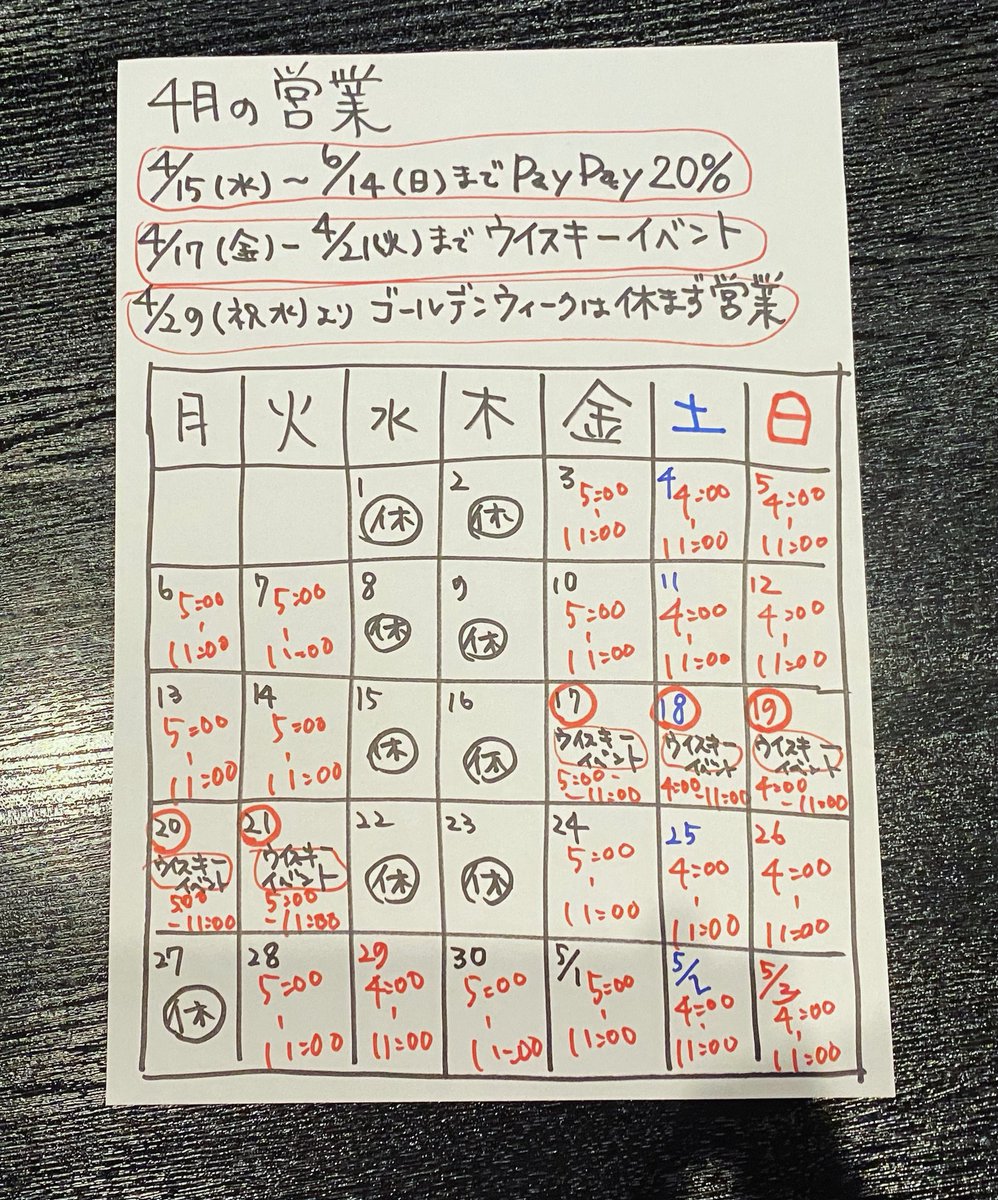 4月の営業
4/15(水)～6/14(日)までPayPay20%
4/17(金)-4/21(火)までウイスキーイベント
4/29(祝水)よりゴールデンウィークは休まず営業
月 火 水 木 金 土 日
1 2 3 4 5
休 休 5:00-11:00 4:00-11:00 4:00-11:00
6 7 8 9 10 11 12
5:00-11:00 5:00-11:00 休 休 5:00-11:00 4:00-11:00 4:00-11:00
13 14 15 16 17 18 19
5:00-11:00 5:00-11:00 休 休 ウイスキーイベント 5:00-11:00 ウイスキーイベント 4:00-11:00 ウイスキーイベント 4:00-11:00
20 21 22 23 24 25 26
ウイスキーイベント 5:00-11:00 ウイスキーイベント 5:00-11:00 休 休 5:00-11:00 4:00-11:00 4:00-11:00
27 28 29 30 5/1 5/2 5/3
休 5:00-11:00 4:00-11:00 5:00-11:00 5:00-11:00 4:00-11:00 4:00-11:00